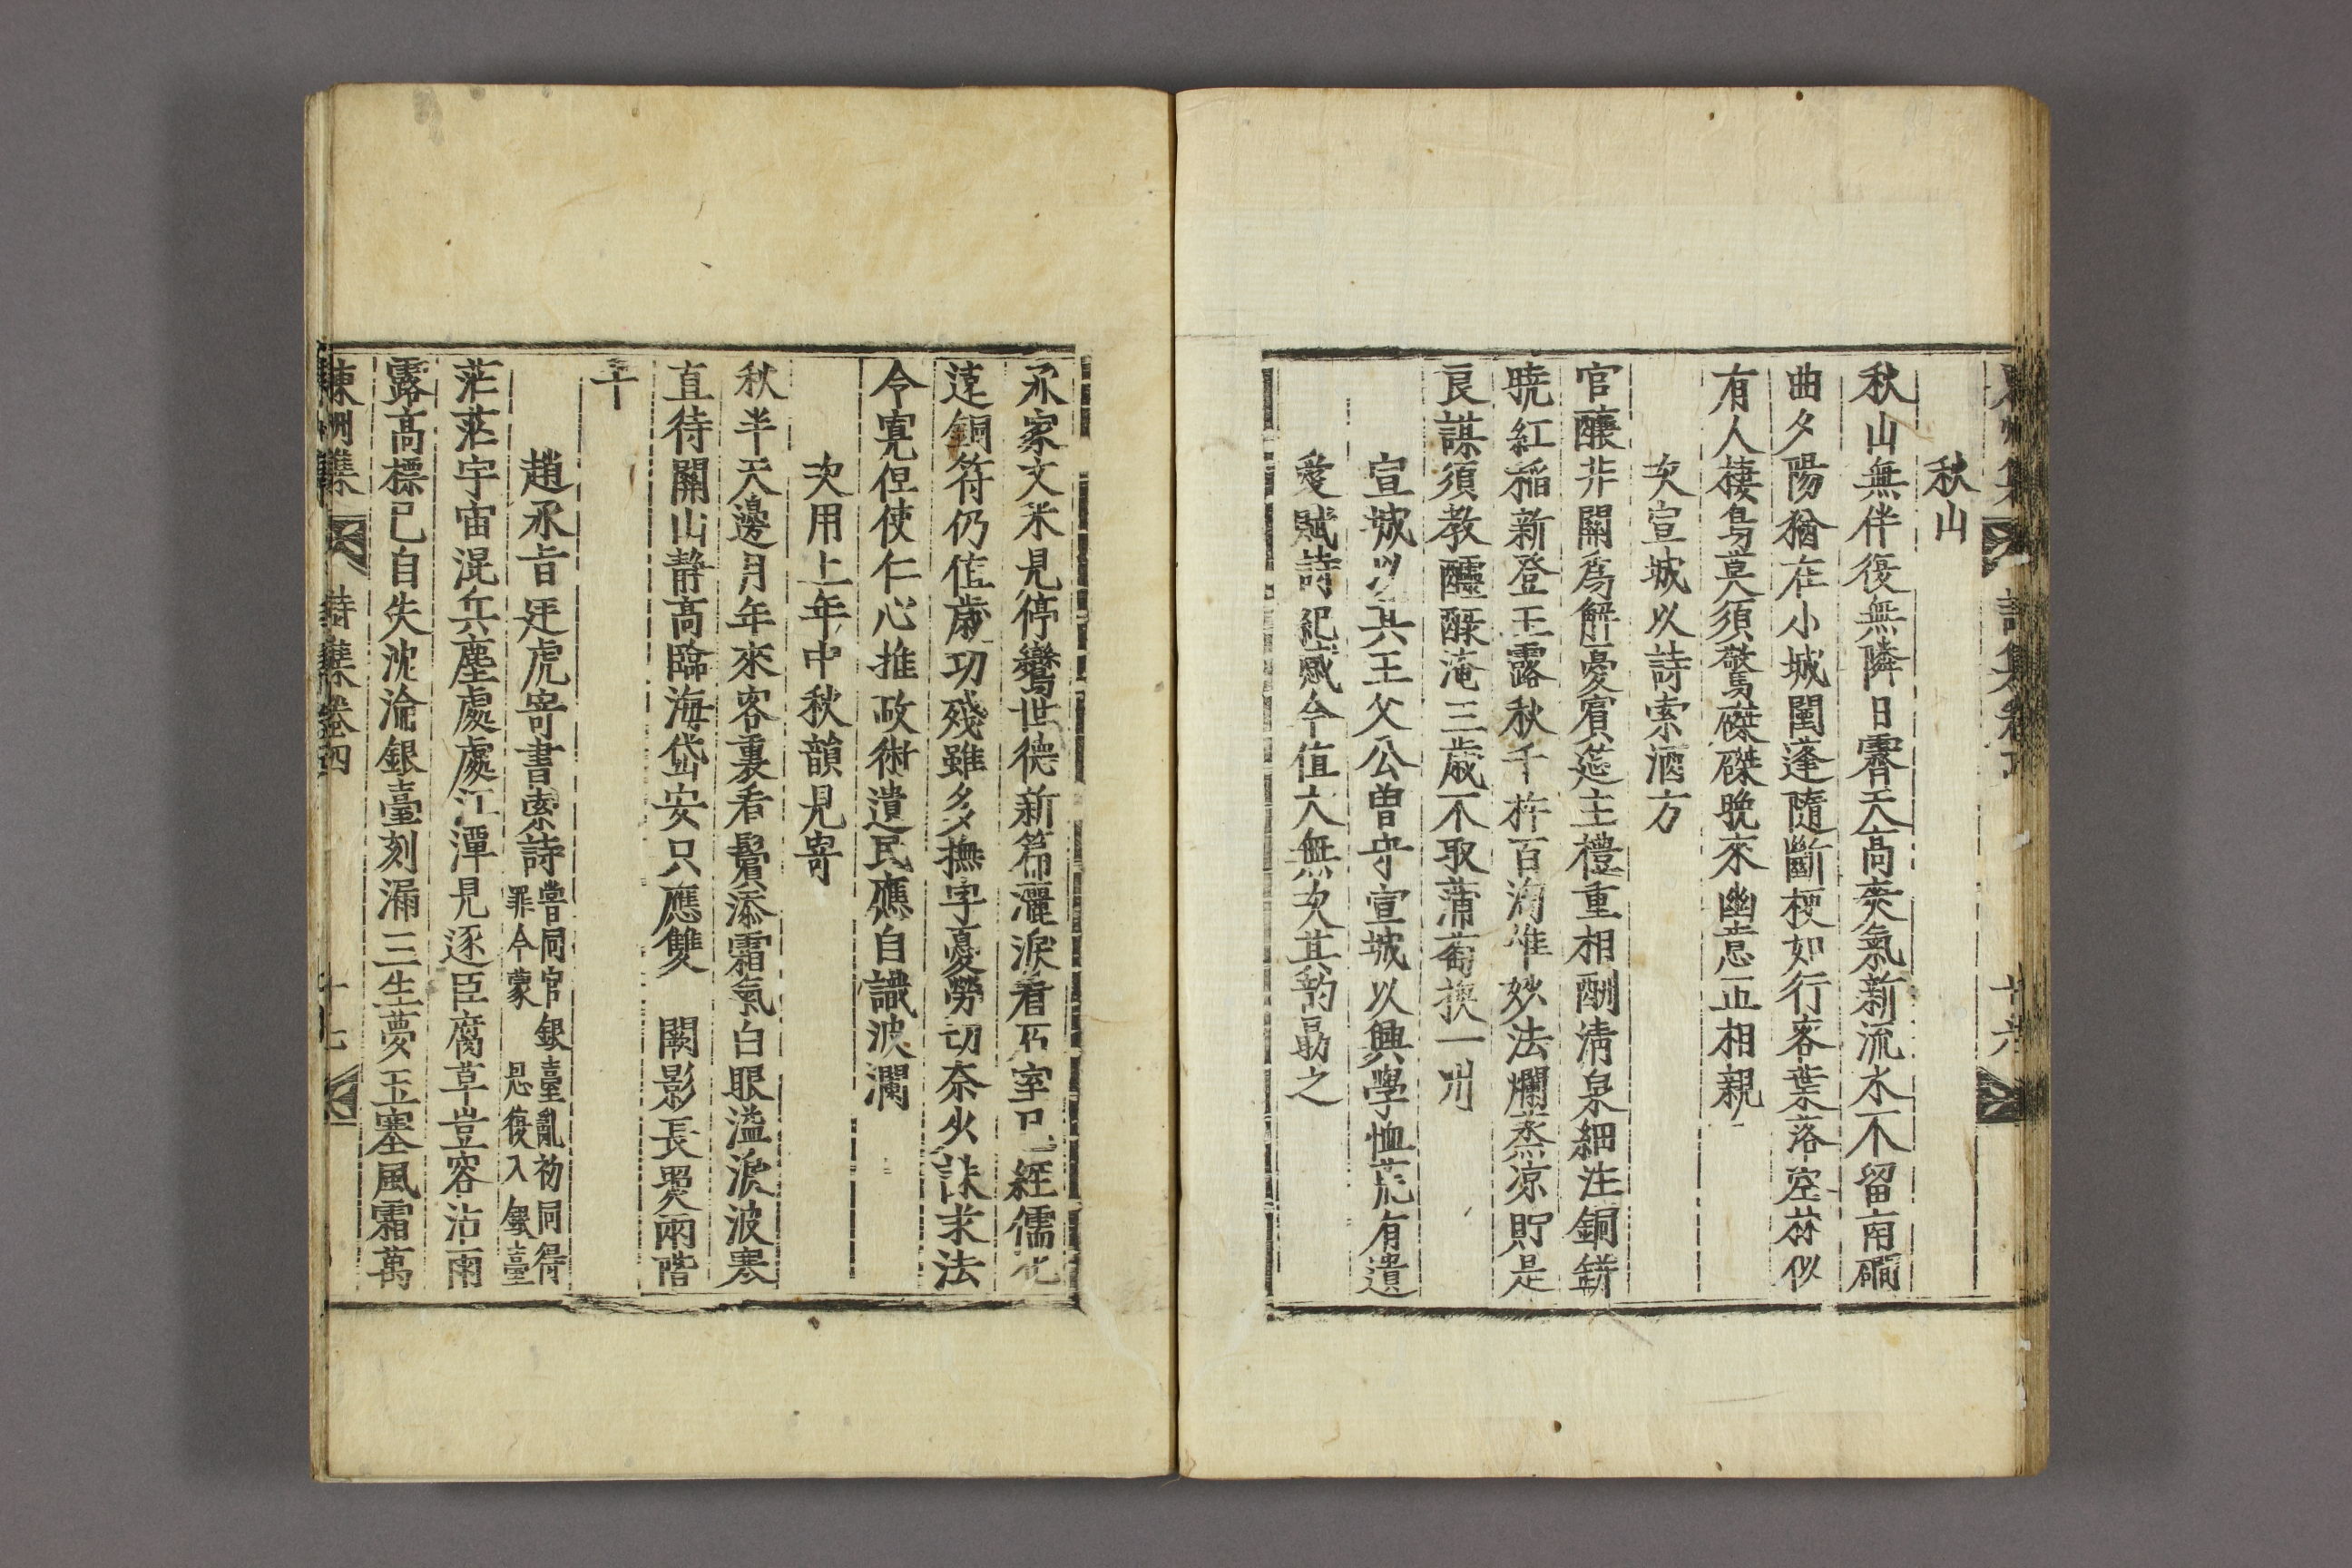 秋山
秋山無伴復無隣日霽天高爽氣新流水不留南磵
曲夕陽猶在小城闉蓬隨斷梗如行客葉落空林似
有人棲鳥莫須驚磔磔晚來幽意正相親
次宣城以詩索酒方
官釀非關爲解憂賓筵主禮重相酬淸泉細注銅缾
曉紅稻新登玉露秋千杵百淘惟妙法爛蒸凉貯是
良謀須教醞醁淹三歲不取蒲萄換一州
宣城以其王父公曾守宣城以興學恤荒有遺
愛賦詩紀感今值大無次其韵勗之
承家文采見停鸞世德新篇灑淚看石室已經儒化
遠銅符仍値歲功殘雖多撫字憂勞切奈火誅求法
令寬但使仁心推政術遺民應自識波瀾
次用上年中秋韻見寄
秋半天邊月年來客裏看鬢添霜氣白眼溢淚波寒
直待關山靜高臨海岱安只應雙 闕影長照兩階
干
趙承旨廷虎寄書索詩嘗同官銀臺亂初同得
罪今蒙 恩復入銀臺
茫茫宇宙混兵塵處處江潭見逐臣腐草豈容沾雨
露高標已自失沈淪銀臺刻漏三生夢玉塞風霜萬
東州集 詩集卷四 十七